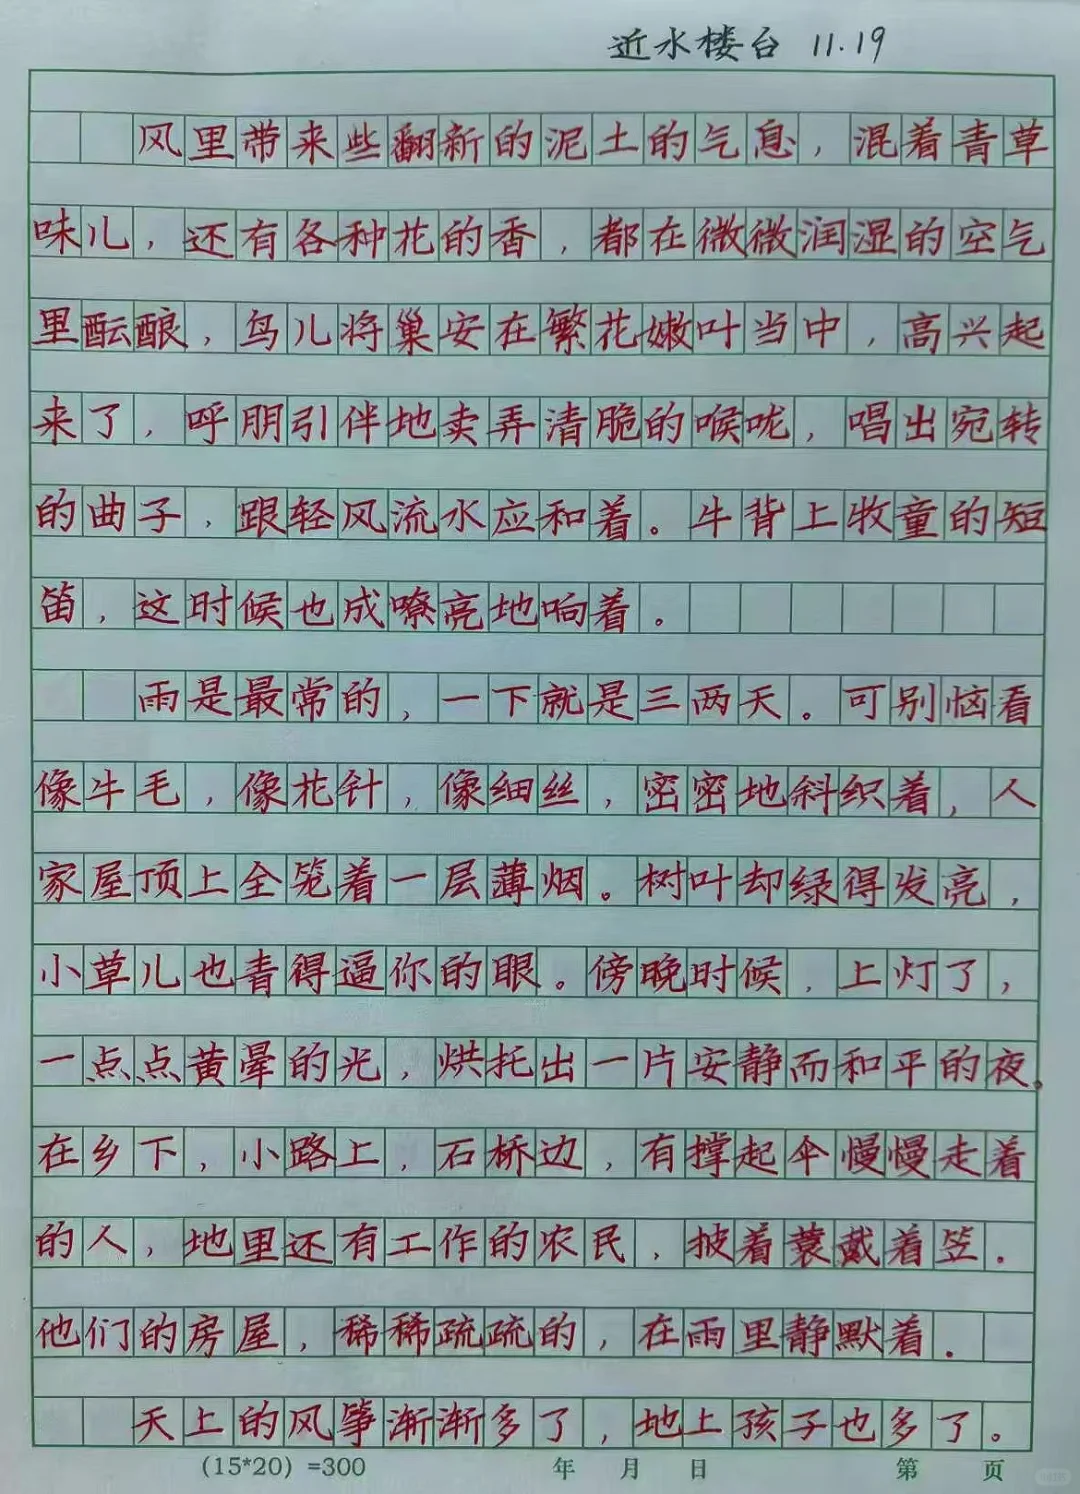 近水楼台 11.19
风里带来些翻新的泥土的气息，混着青草
味儿，还有各种花的香，都在微微润湿的空气
里酝酿，鸟儿将巢安在繁花嫩叶当中，高兴起
来了，呼朋引伴地卖弄清脆的喉咙，唱出宛转
的曲子，跟轻风流水应和着。牛背上牧童的短
笛，这时候也成嘹亮地响着。
雨是最常的，一下就是三两天。可别恼看
像牛毛，像花针，像细丝，密密地斜织着，人
家屋顶上全笼着一层薄烟。树叶却绿得发亮，
小草儿也青得逼你的眼。傍晚时候，上灯了，
一点点黄晕的光，烘托出一片安静而和平的夜。
在乡下，小路上，石桥边，有撑起伞慢慢走着
的人，地里还有工作的农民，披着蓑戴着笠．
他们的房屋，稀稀疏疏的，在雨里静默着．
天上的风筝渐渐多了，地上孩子也多了。
(15*20)＝300 年 月 日 第 页